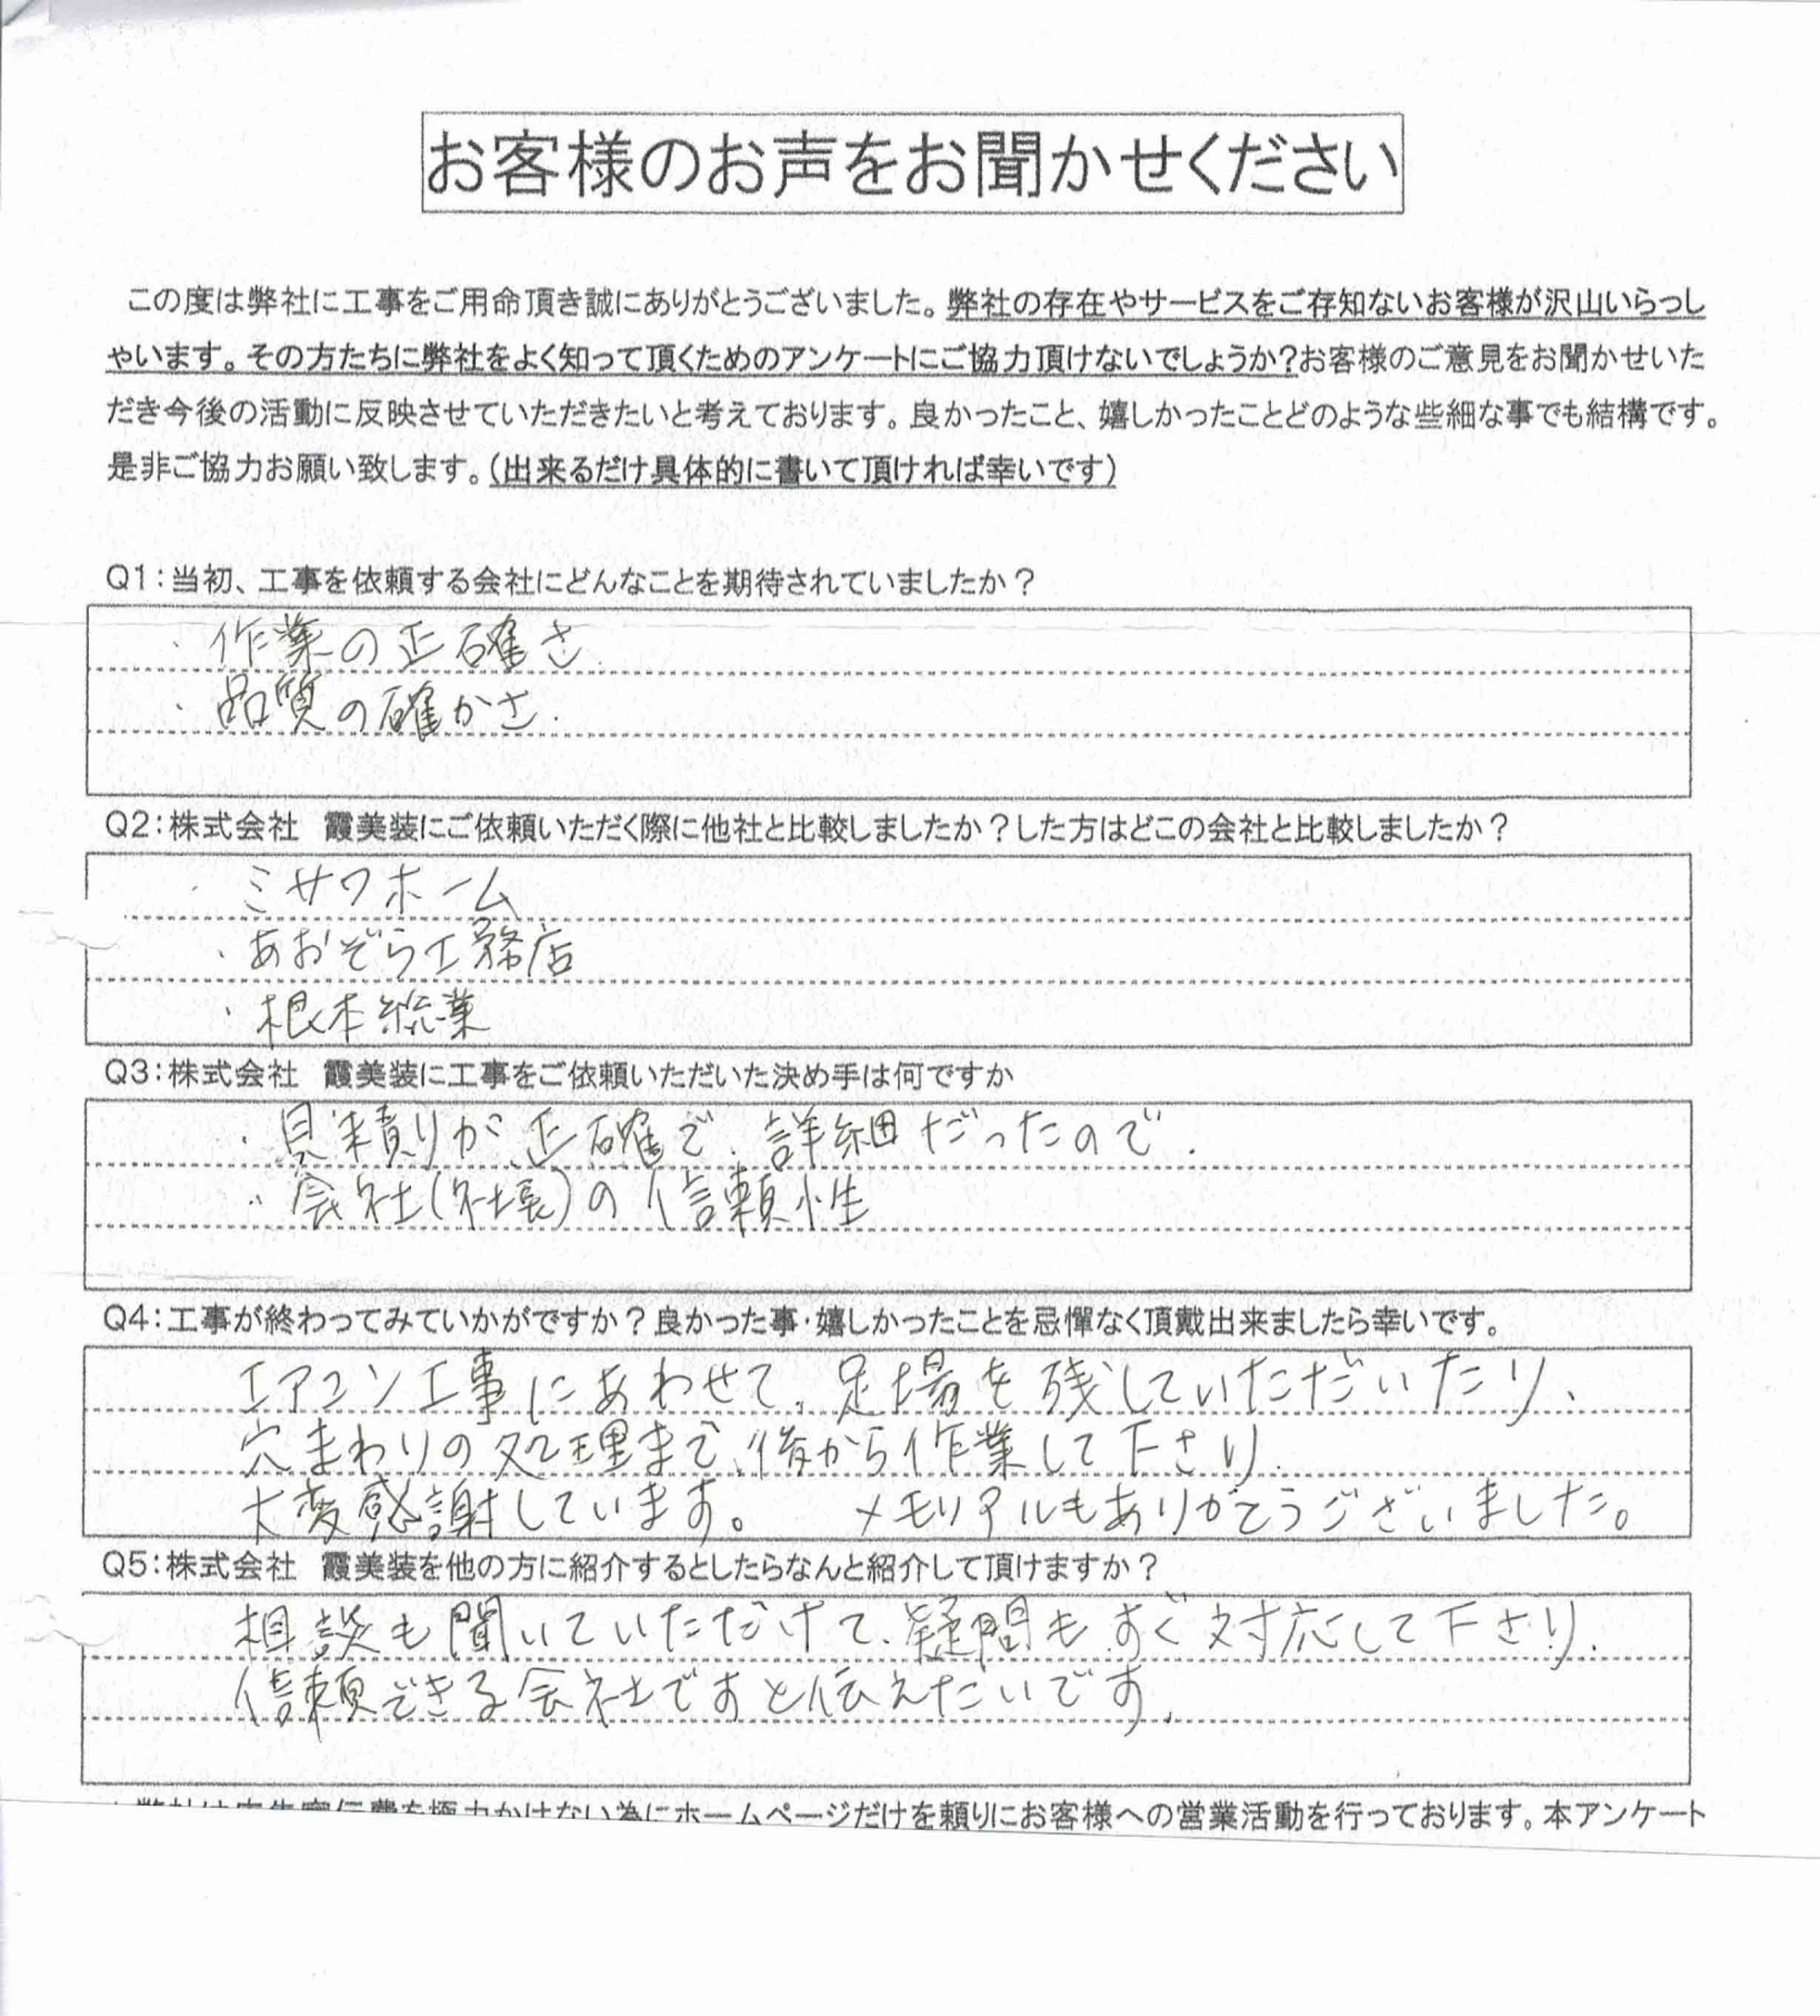 お客様のお声をお聞かせください
この度は弊社に工事をご用命頂き誠にありがとうございました。弊社の存在やサービスをご存知ないお客様が沢山いらっし
ゃいます。その方たちに弊社をよく知って頂くためのアンケートにご協力頂けないでしょうか?お客様のご意見をお聞かせいた
だき今後の活動に反映させていただきたいと考えております。良かったこと、嬉しかったことどのような些細な事でも結構です。
是非ご協力お願い致します。(出来るだけ具体的に書いて頂ければ幸いです)
Q1:当初、工事を依頼する会社にどんなことを期待されていましたか?
・作業の正確さ
・品質の確かさ.
Q2:株式会社 霞美装にご依頼いただく際に他社と比較しましたか?した方はどこの会社と比較しましたか?
・ミサワホーム
・あおぞら工務店
・根本総業
Q3:株式会社 霞美装に工事をご依頼いただいた決め手は何ですか
・見積りが正確で、詳細だったので.
・会社(社長)の信頼性
Q4:工事が終わってみていかがですか?良かった事・嬉しかったことを忌憚なく頂戴出来ましたら幸いです。
エアコン工事にあわせて、足場を残していただいたり、
穴まわりの処理まで、後から作業して下さり.
大変感謝しています。 メモリアルもありがとうございました。
Q5:株式会社 霞美装を他の方に紹介するとしたらなんと紹介して頂けますか?
相談も聞いていただけて、疑問もすぐ対応して下さり.
信頼できる会社ですと伝えたいです.
弊社は広告宣伝費を極力かけない為にホームページだけを頼りにお客様への営業活動を行っております。本アンケート